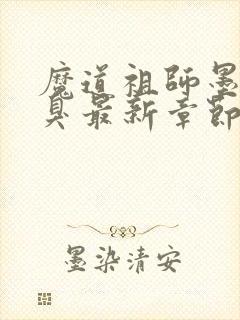 魔道祖師墨
臭最新章節
墨染清安